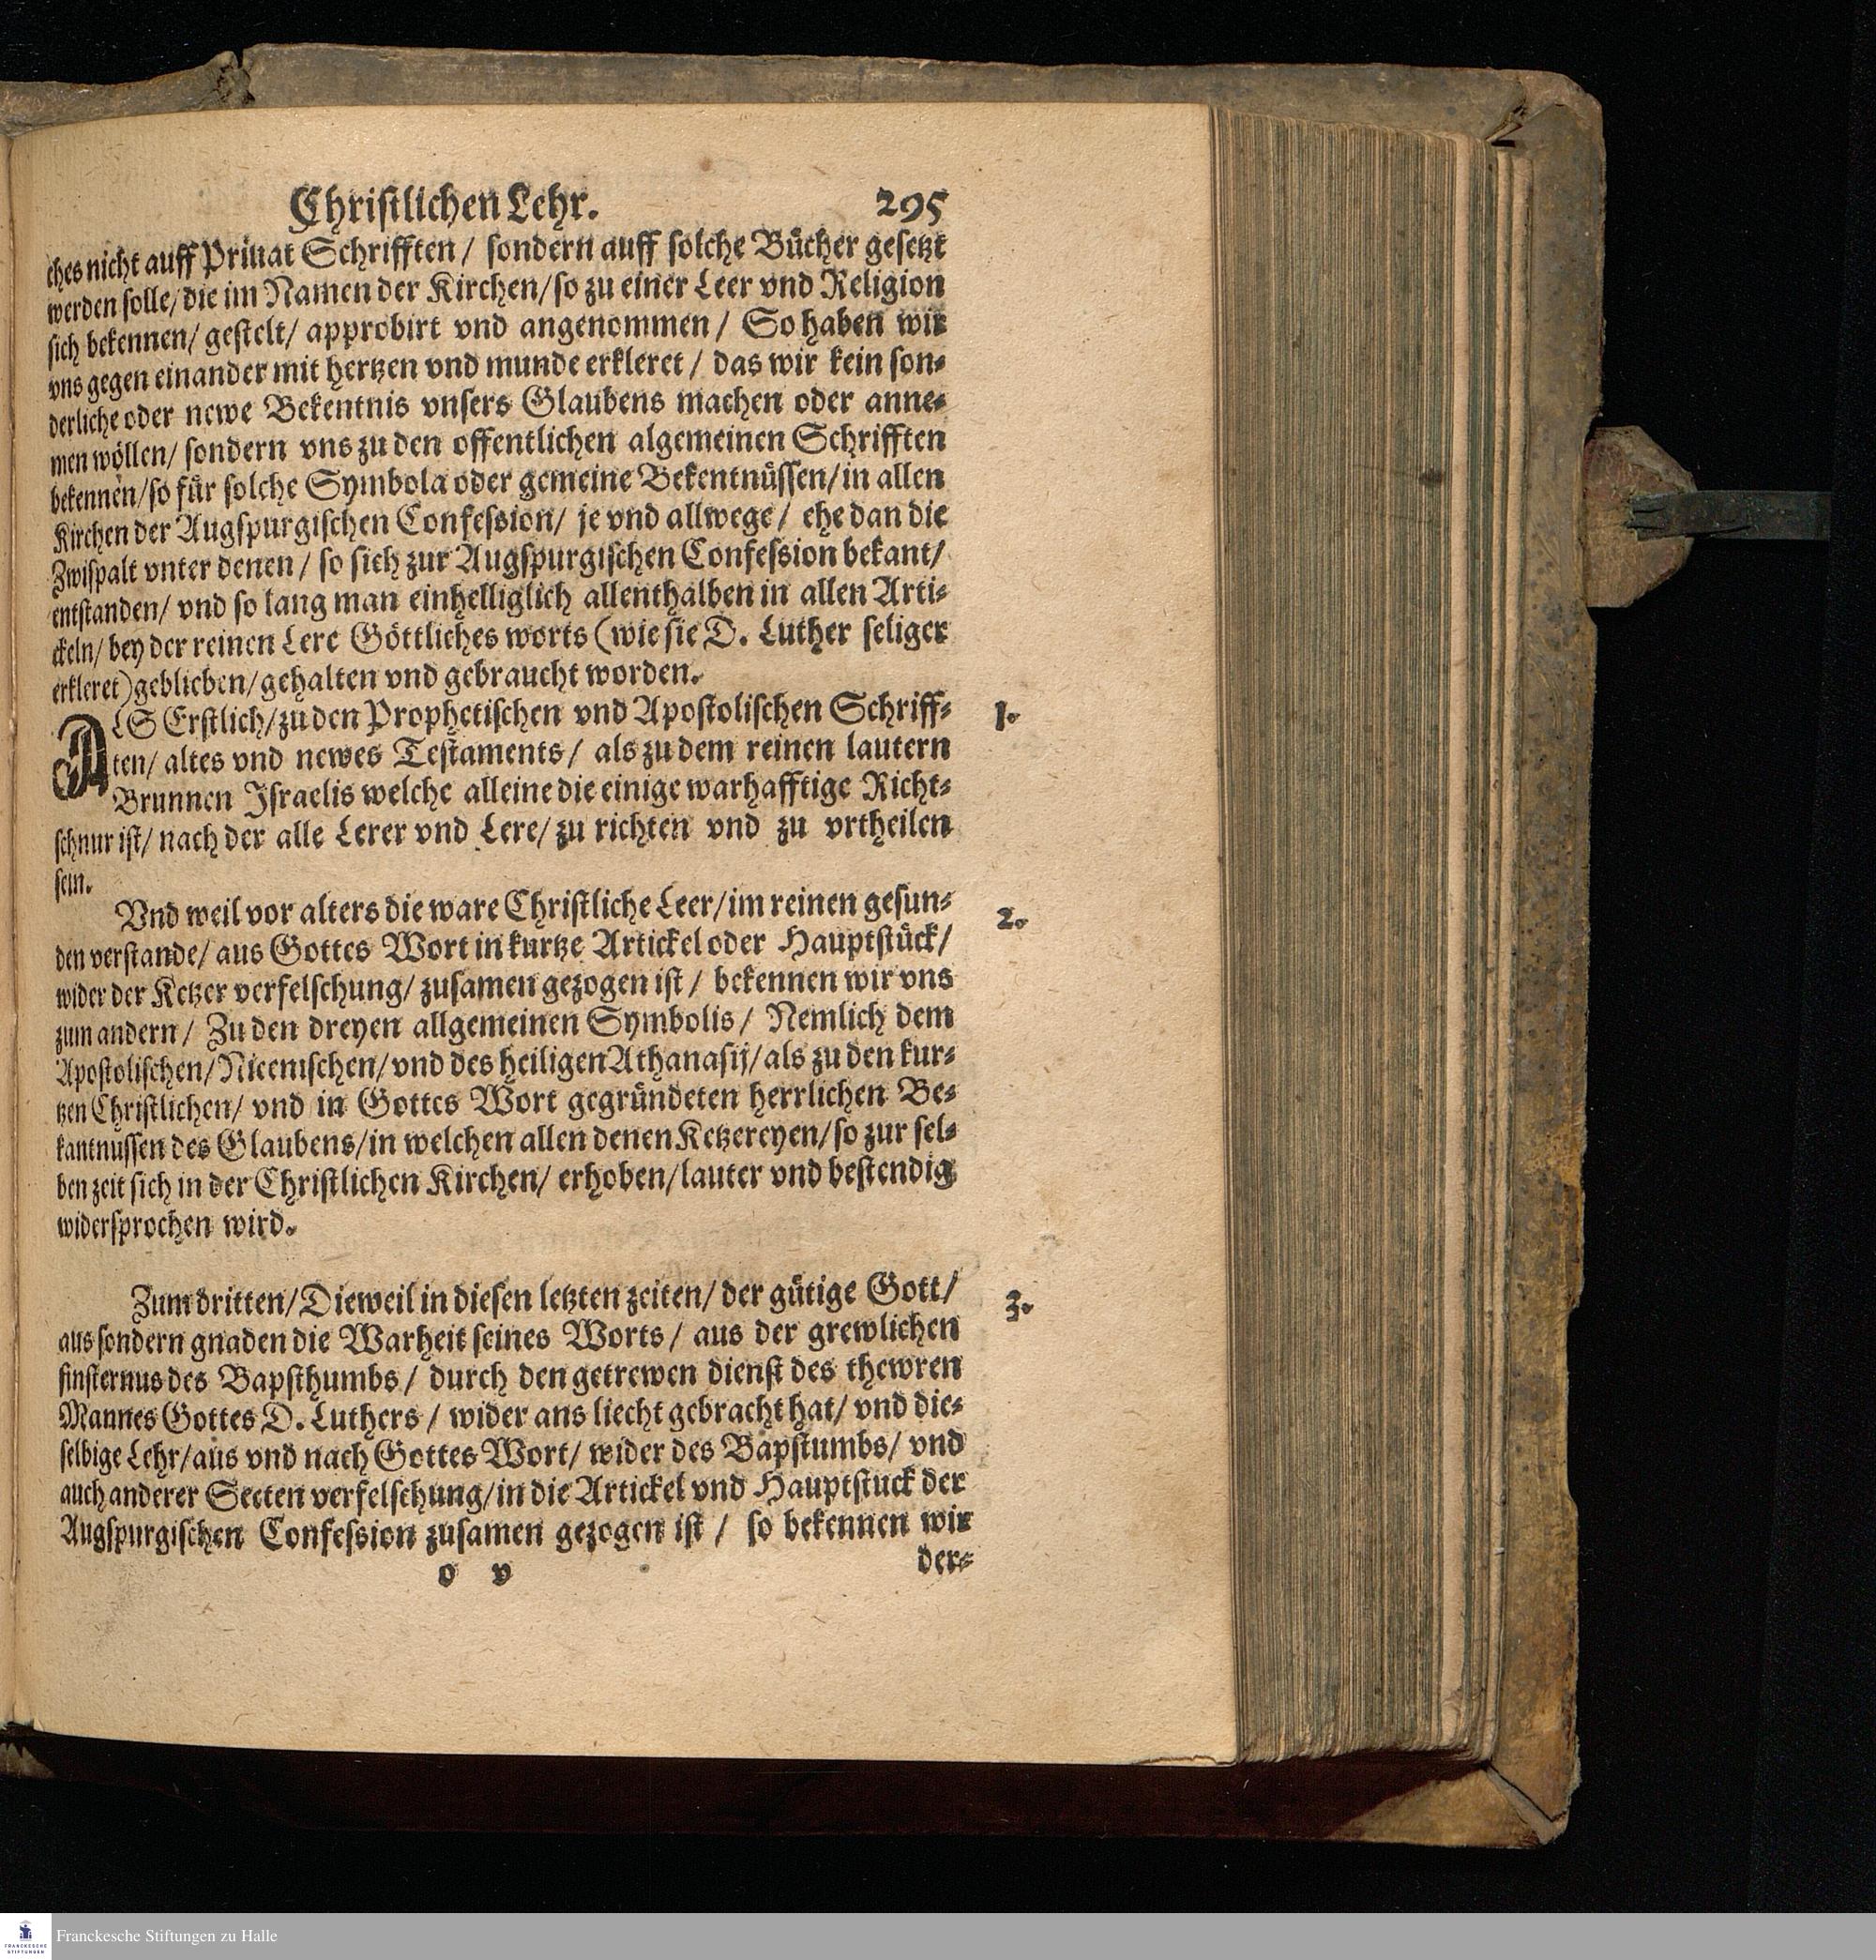 Christlichen Lehr. 295
ches nicht auff Priuat Schrifften / sondern auff solche Bücher gesetzt
werden solle / die im Namen der Kirchen / so zu einer Leer vnd Religion
sich bekennen / gestelt / approbirt vnd angenommen / So haben wir
vns gegen einander mit hertzen vnd munde erkleret / das wir kein son-
derliche oder newe Bekentnis vnsers Glaubens machen oder anne-
men wöllen / sondern vns zu den offentlichen algemeinen Schrifften
bekennen / so für solche Symbola oder gemeine Bekentnüssen / in allen
Kirchen der Augspurgischen Confession / je vnd allwege / ehe dan die
Zwispalt vnter denen / so sich zur Augspurgischen Confession bekant /
entstanden / vnd so lang man einhelliglich allenthalben in allen Arti-
ckeln / bey der reinen Lere Göttliches worts (wie sie D. Luther seliger
erkleret) geblieben / gehalten vnd gebraucht worden.
ALS Erstlich / zu den Prophetischen vnd Apostolischen Schriff- 1.
ten / altes vnd newes Testaments / als zu dem reinen lautern
Brunnen Israelis welche alleine die einige warhafftige Richt-
schnur ist / nach der alle Lerer vnd Lere / zu richten vnd zu vrtheilen
sein.
Vnd weil vor alters die ware Christliche Leer / im reinen gesun- 2.
den verstande / aus Gottes Wort in kurtze Artickel oder Hauptstück /
wider der Ketzer verfelschung / zusamen gezogen ist / bekennen wir vns
zum andern / Zu den dreyen allgemeinen Symbolis / Nemlich dem
Apostolischen / Nicenischen / vnd des heiligen Athanasij / als zu den kur-
tzen Christlichen / vnd in Gottes Wort gegründeten herrlichen Be-
kantnussen des Glaubens / in welchen allen denen Ketzereyen / so zur sel-
ben zeit sich in der Christlichen Kirchen / erhoben / lauter vnd bestendig
widersprochen wird.
Zum dritten / Dieweil in diesen letzten zeiten / der gütige Gott / 3.
aus sondern gnaden die Warheit seines Worts / aus der grewlichen
finsternus des Bapsthumbs / durch den getrewen dienst des thewren
Mannes Gottes D. Luthers / wider ans liecht gebracht hat / vnd die-
selbige Lehr / aus vnd nach Gottes Wort / wider des Bapstumbs / vnd
auch anderer Secten verfelschung / in die Artickel vnd Hauptstuck der
Augspurgischen Confession zusamen gezogen ist / so bekennen wir
o v der-
FRANCKESCHE STIFTUNGEN
Franckesche Stiftungen zu Halle